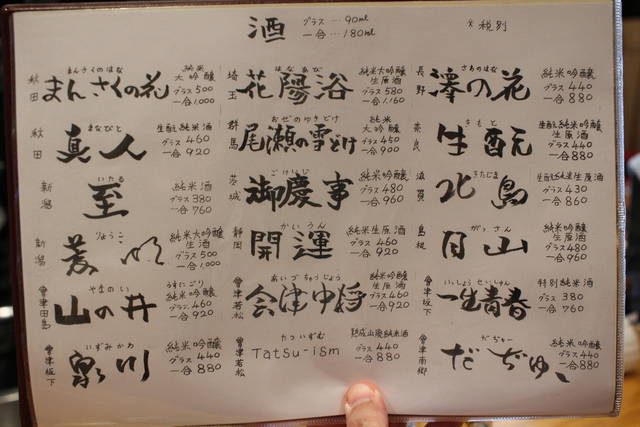 酒
グラス…90ml
一合…180ml
※税別
秋田
まんさくのはな
まんさくの花
純米
大吟醸
グラス500
一合1,000
埼玉
はなあび
花陽浴
純米大吟醸
生原酒
グラス580
一合1,160
長野
さわのはな
澤の花
純米吟醸
グラス440
一合880
秋田
まなびと
真人
生酛純米酒
グラス460
一合920
群馬
おぜのゆきどけ
尾瀬の雪どけ
純米
大吟醸
グラス450
一合900
奈良
きもと
生酛
生酛純米吟醸
生原酒
グラス440
一合880
新潟
いたる
至
純米酒
グラス380
一合760
茨城
ごけいじ
御慶事
純米吟醸
グラス480
一合960
滋賀
きたじま
北島
生酛純米生原酒
グラス430
一合860
新潟
りょうこ
純米大吟醸
生酒
グラス500
一合1,000
静岡
かいうん
開運
純米生原酒
グラス460
一合920
島根
がっさん
月山
純米吟醸
生原酒
グラス480
一合960
會津田島
やまのい
山の井
うすにごり
純米吟醸
グラス460
一合920
會津若松
あいづちゅうじょう
会津中将
純米吟醸
生原酒
グラス460
一合920
會津坂下
いっしょうせいしゅん
一生青春
特別純米酒
グラス380
一合760
會津坂下
いずみかわ
泉川
純米吟醸
グラス440
一合880
會津若松
たついずむ
Tatsu-ism
熟成山廃純米酒
グラス440
一合880
會津南郷
だぢゅー
だぢゅ、
純米吟醸
グラス440
一合880